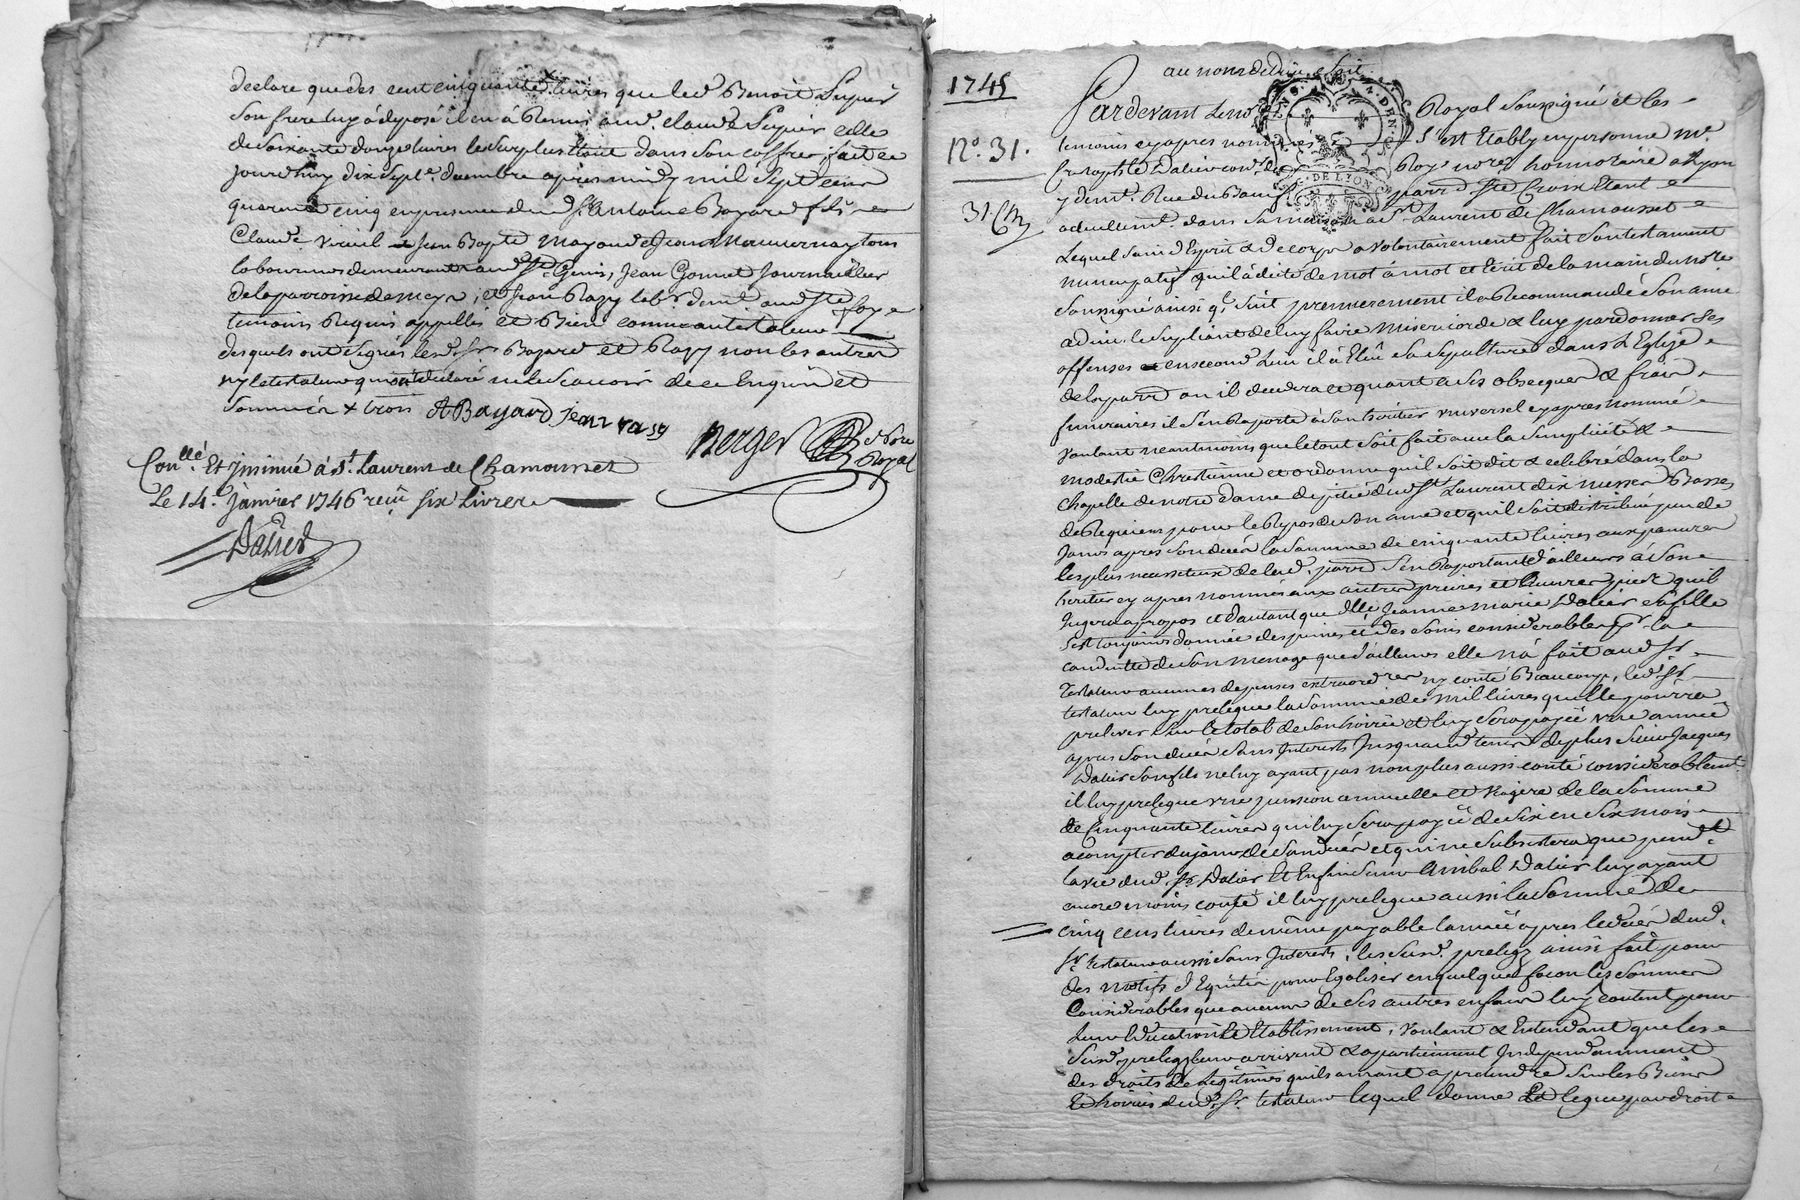 declare que des cent cinquante livres que led. Benoit Supier
son frere luy à deposé il en à Remis aud. Claude Supier celle
de soixante douze livres le surplus étant dans son coffre, fait ce
jourdhuy dix sept.e decembre apres midy mil sept cens
quarante cinq en presence de S.r Antoine Bayard fils
Claude Jean Bapte Mayoud et Jean tous
laboureurs demeurant aud. St Genis, Jean Gonnet Journailler
de la parroisse de Meys, et Jean Razy lab.r dem.t aud. Ste foye
temoins Requis appellés et Bien connus au testateur
desquels ont signés lesd. Srs Bayard et Razy non les autres
ny le testateur qui ont déclaré ne le scavoir de ce Enquis et
sommés x trois ABayard Jean razy
Berger No.re Royal
Con.llé Et Jnsinué à St Laurent de Chamousset
Le 14.e Janvier 1746 reçu six Livres
Dalier
au nom de Dieu soit
1745
Pardevant le no.re Royal soussigné et les
N.o 31.
temoins cy apres nommés s'est Etably en personne Me
Dalier Roy no.re honnoraire a Lyon
DE LYON
y dem.t Rue du Bœuf parr. Ste Croix Etant
31. Xbre
actuellem.t dans sa maison a St Laurent de Chamousset
Lequel sain d'Esprit & de corps a volontairement fait son testament
nuncupatif qu'il à dicté de mot à mot et Ecrit de la main du no.re
soussigné ainsi q.l suit premierement il a Recommandé son ame
a dieu le supliant de luy faire misericorde & luy pardonner ses
offenses en second lieu il à Elû sa sepulture dans l'Eglise
de la parr. ou il decedera et quant a ses obseques & frais
funeraires il s'en Raporte à son heritier universel cy apres nommé
voulant neantmoins que le tout soit fait avec la simplicité &
modestie Chrestienne et ordonne qu'il soit dit & celebré dans la
chapelle de notre dame de pitié dud. St Laurent dix messes Basses
de Requiem pour le Repos de son ame et qu'il soit distribué peu de
jours apres son decés la somme de cinquante livres aux pauvres
les plus necessiteux de lad. parr. s'en Raportant d'ailleurs à son
heritier cy apres nommé aux autres prieres et œuvres pies qu'il
jugera apropos et d'autant que Dlle Jeanne Marie Dalier sa fille
s'est toujours donnée des peines et des soins considerables pr la
conduitte de son menage que d'ailleurs elle n'a fait aud. Sr
testateur aucunes depenses extraord.res ny couté Beaucoup, led. Sr
testateur luy prelegue la somme de mil livres quelle pourra
prelever sur le total de son hoirie et luy sera payée une année
apres son decés sans Interests jusqu'aud. tems de plus Sieur Jacques
Dalier son fils ne luy ayant pas non plus aussi couté considerablemt.
il luy prelegue une pension annuelle et viagere de la somme
de Cinquante livres qui luy sera payée de six en six mois
a compter du jour de son decés et qui ne subsistera que pend.t
la vie dud. Sr Dalier Et Enfin Sieur Anibal Dalier luy ayant
encore moins couté il luy prelegue aussi la somme de
cinq cens livres de même payable l'année apres le decés dud.
Sr testateur aussi sans Interests, les susd. prelegs ainsi fait pour
des motifs d'Equité pour Egaliser en quelque facon les sommes
Considerables que aucuns de ses autres enfans luy coutent pour
leur Education Et Etablissement, voulant & Entendant que les
susd. prelegs leur arrivent & apartiennent Independamment
des droits de Legitimes qu'ils auront a prendre sur les Biens
Et hoiries dud. Sr testateur lequel donne Et legue par droit